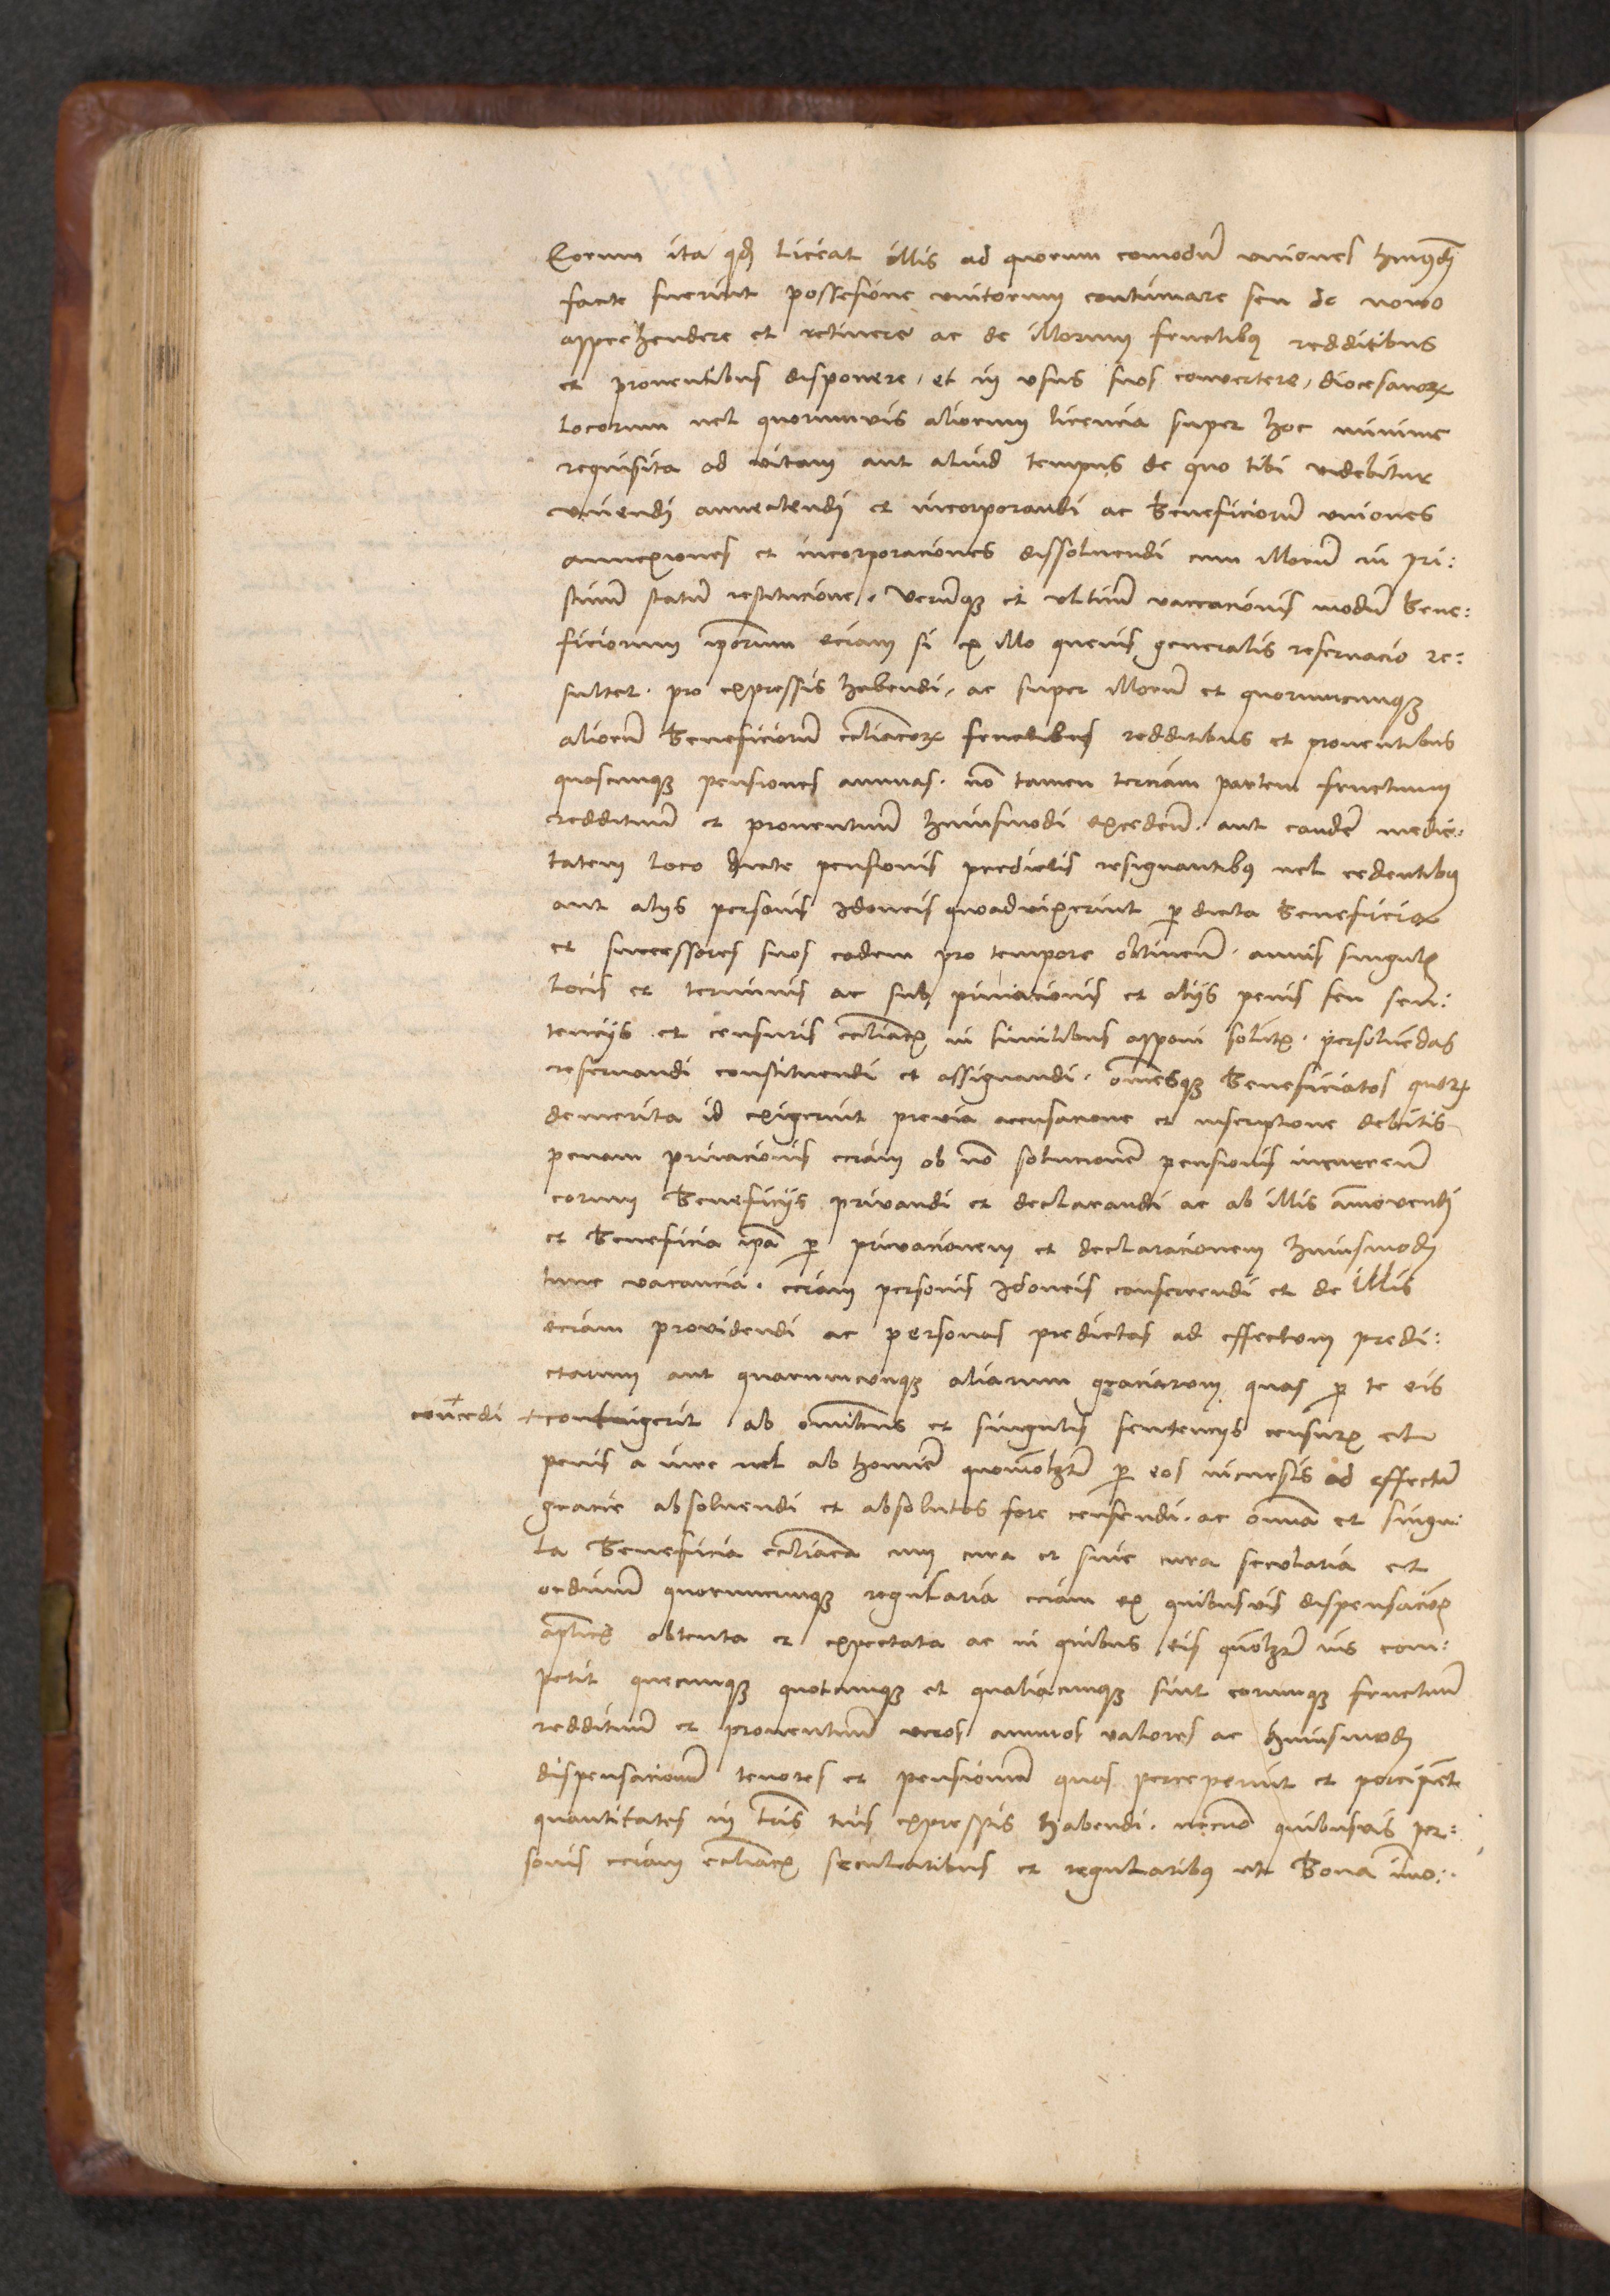 Eorum ita qd liceat illis ad quorum comodu uniones hmodi
facte fuerint possesione unitorum continuare seu de novo
apprehendere et retinere ac de illorum fructibus redditibus
et proventibus disponere, et in usus suos convertere, diocesanorum
locorum vel quorumvis aliorum licencia super hoc minime
requisita ad vitam aut aliud tempus de quo tibi videbitur
uniendi annectendi et incorporandi ac beneficioru uniones
annexiones et incorporaciones dissolvendi cum illoru in pri:
stinu statu restitucione. Verumque et ultimu vaccacionis modu bene:
ficiorum iporum eciam si ex illo quevis generalis reservacio re:
sultet. pro expressis habendi, ac super illoru et quorumcunque
alioru beneficioru eccliacorum fructibus redditibus et proventibus
quascunque pensiones annuas. no tamen terciam partem fructuum
reddituu et proventuu huiusmodi exceden. aut eande medie:
tatem loco dicte pensionis predictis resignantibus vel cedentibus
aut alijs personis idoneis quoadvixerint per dicta beneficia
et successores suos eadem pro tempore obtinen. annis singulis
locis et terminis ac sub privacionis et alijs penis seu sen:
tencijs et censuris eccliacis in similibus apponi solitis. persolvendas
reservandi constituendi et assignandi. omesque beneficiatos quorum
demerita id exigerint previa accusacione et inscriptione debitis
penam privacionis eciam ob no solucione pensionis incurreru
eorum beneficijs privandi et declarandi ac ab illis amovendi
et beneficia ipa per privacionem et declaracionem huiusmodi
tunc vacancia. eciam personis idoneis conferendi et de illis
eciam providendi ac personas predictas ad effectum predi:
ctarum aut quarumcunque aliarum graciarum quas per te eis
concedi + contingerit ab omibus et singulis sentencijs censuris et
penis a iure vel ab homie quomolzt per eos incursis ad effectu
gracie absolvendi et absolutos fore censendi. ac omia et singu:
la beneficia eccliaca cum cura et sine cura secularia et
ordinu quorumcunque regularia eciam ex quibusvis dispensacionibus
aplicis obtenta et expectata ac in quibus eis quolzt ius com:
petit quecunque quotcunque et qualiacunque sint eorumque fructuu
reddituu et proventuu veros annuos valores ac huiusmodi
dispensacionu tenores et pensionu quas perceperint et percipiet
quantitates in lris tuis expressis habendi. necno quibusvis per:
sonis eciam eccliacis secularibus et regularibus ut bona imo: